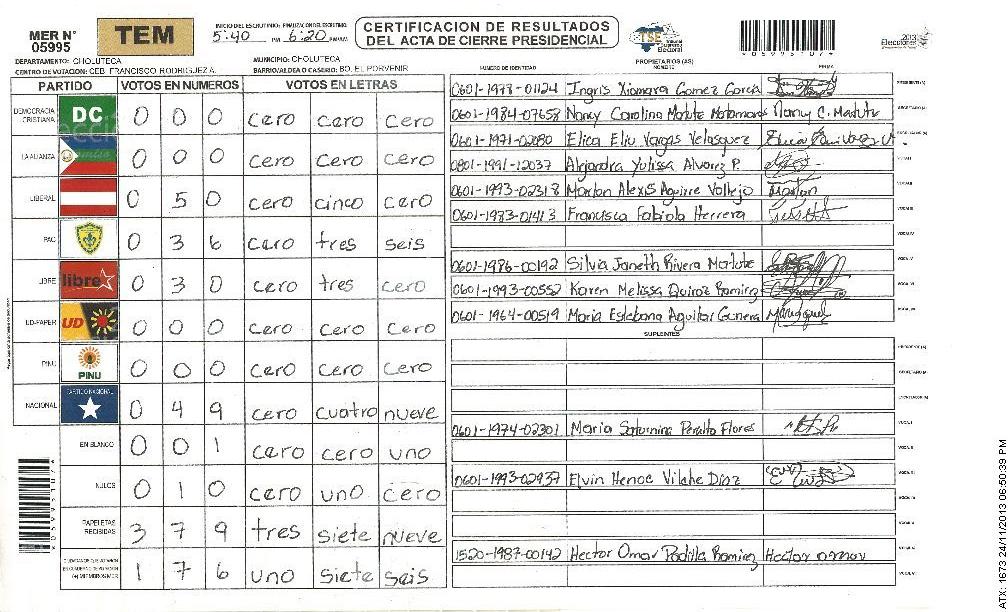 MER N° 05995
TEM
INICIO DEL ESCRUTINIO: FINALIZACION DEL ESCRUTINIO:
5:40 PM 6:20 PM/AM
CERTIFICACION DE RESULTADOS
DEL ACTA DE CIERRE PRESIDENCIAL
TSE Tribunal Supremo Electoral
2013 Elecciones
DEPARTAMENTO: CHOLUTECA
MUNICIPIO: CHOLUTECA
CENTRO DE VOTACION: CEB. FRANCISCO RODRIGUEZ A.
BARRIO/ALDEA O CASERIO: BO. EL PORVENIR
PARTIDO VOTOS EN NUMEROS VOTOS EN LETRAS
DEMOCRACIA CRISTIANA DC 0 0 0 cero cero cero
LA ALIANZA 0 0 0 cero cero cero
LIBERAL 0 5 0 cero cinco cero
PAC 0 3 6 cero tres seis
LIBRE libre 0 3 0 cero tres cero
UD-FAPER UD 0 0 0 cero cero cero
PINU PINU 0 0 0 cero cero cero
NACIONAL PARTIDO NACIONAL 0 4 9 cero cuatro nueve
EN BLANCO 0 0 1 cero cero uno
NULOS 0 1 0 cero uno cero
PAPELETAS RECIBIDAS 3 7 9 tres siete nueve
1 7 6 uno siete seis
NUMERO DE IDENTIDAD PROPIETARIOS (AS) NOMBRE FIRMA
0601-1978-01124 Ingris Xiomara Gomez Garcia
0601-1984-07658 Nancy Carolina Matute Matamoros Nancy C. Matute
0601-1971-02080 Elica Eliu Vargas Velasquez
0801-1991-12037 Alejandra Yulissa Alvarez P.
0601-1993-02318 Marlon Alexis Aguirre Vallejo Marlon
0601-1983-01413 Francisca Fabiola Herrera
0601-1986-00192 Silvia Janeth Rivera Matute
0601-1993-00552 Karen Melissa Quiroz Ramirez
0601-1964-00519 Maria Estebana Aguilar Gunera
SUPLENTES
0601-1974-02301 Maria Saturnina Peralta Flores
0601-1993-02937 Elvin Henoc Vilche Diaz
1520-1987-00142 Hector Omar Padilla Ramirez Hector omar
ATX: 1673 24/11/2013 06:50:39 PM